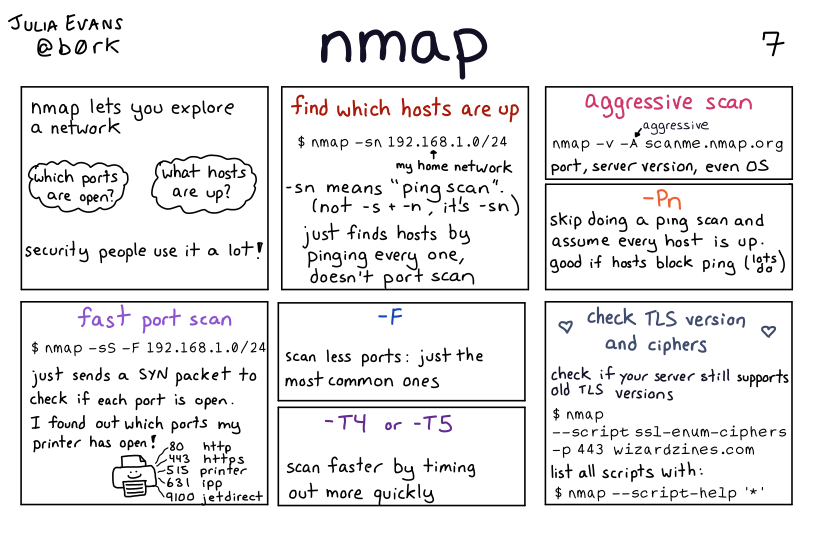 JULIA EVANS
@b0rk
nmap
7
nmap lets you explore
a network
which ports
are open?
what hosts
are up?
security people use it a lot!
find which hosts are up
$ nmap -sn 192.168.1.0/24
my home network
-sn means "ping scan".
(not -s + -n, it's -sn)
just finds hosts by
pinging every one,
doesn't port scan
aggressive scan
aggressive
nmap -v -A scanme.nmap.org
port, server version, even OS
-Pn
skip doing a ping scan and
assume every host is up.
good if hosts block ping (lots
do)
fast port scan
$ nmap -sS -F 192.168.1.0/24
just sends a SYN packet to
check if each port is open.
I found out which ports my
printer has open!
80 http
443 https
515 printer
631 ipp
9100 jetdirect
-F
scan less ports: just the
most common ones
-T4 or -T5
scan faster by timing
out more quickly
♡ check TLS version ♡
and ciphers
check if your server still supports
old TLS versions
$ nmap
--script ssl-enum-ciphers
-p 443 wizardzines.com
list all scripts with:
$ nmap --script-help '*'